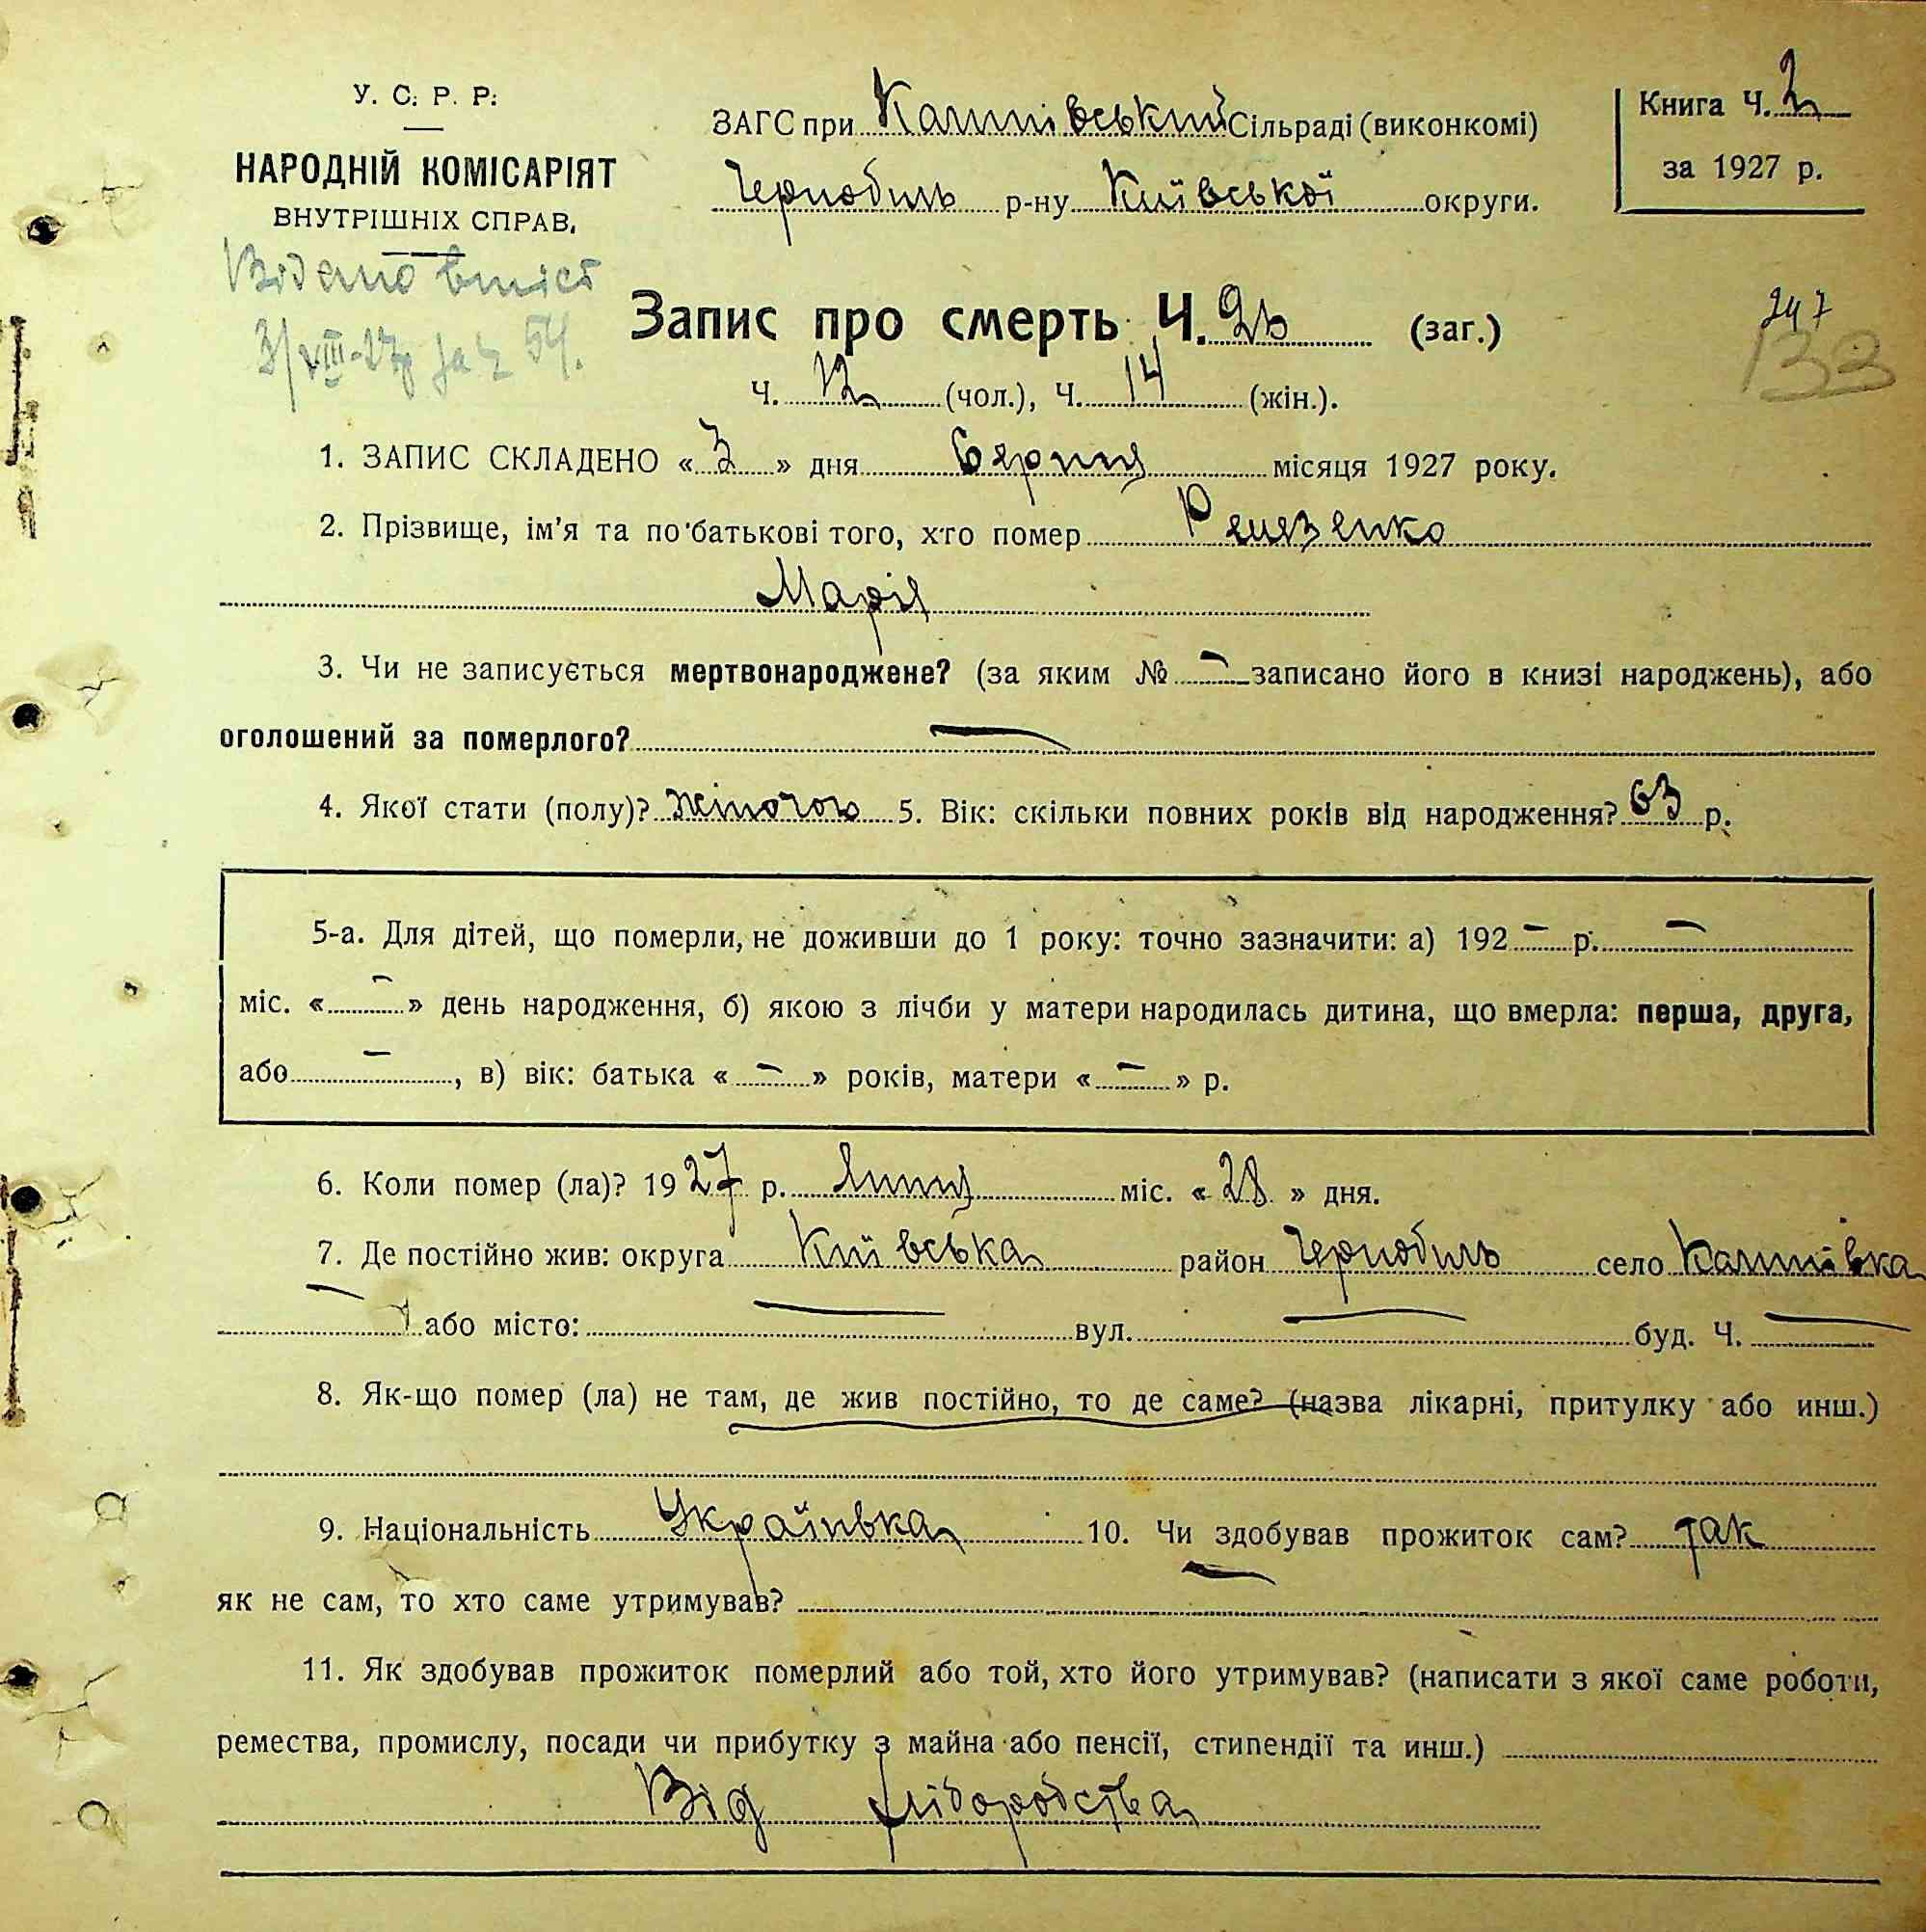 У. С. Р. Р.
НАРОДНІЙ КОМІСАРІЯТ
ВНУТРІШНІХ СПРАВ.
ЗАГС при Сільраді (виконкомі)
Чернобиль р-ну Київської округи.
Книга Ч. 2
за 1927 р.
3/VIII-27р за 54.
Запис про смерть Ч. 26 (заг.)
247
133
Ч. 12 (чол.), Ч. 14 (жін.).
1. ЗАПИС СКЛАДЕНО «3» дня Серпня місяця 1927 року.
2. Прізвище, ім'я та по батькові того, хто помер
Марія
3. Чи не записується мертвонароджене? (за яким № — записано його в книзі народжень), або
оголошений за померлого? —
4. Якої стати (полу)? жіночою 5. Вік: скільки повних років від народження? 63 р.
5-а. Для дітей, що померли, не доживши до 1 року: точно зазначити: а) 192 — р. —
міс. « — » день народження, б) якою з лічби у матери народилась дитина, що вмерла: перша, друга,
або —, в) вік: батька « — » років, матери « — » р.
6. Коли помер (ла)? 1927 р. Липня міс. «28» дня.
7. Де постійно жив: округа Київська район Чернобиль село
— або місто: — вул. — буд. Ч. —
8. Як-що помер (ла) не там, де жив постійно, то де саме? (назва лікарні, притулку або инш.)
9. Національність Українька 10. Чи здобував прожиток сам? так
як не сам, то хто саме утримував? —
11. Як здобував прожиток померлий або той, хто його утримував? (написати з якої саме роботи,
ремества, промислу, посади чи прибутку з майна або пенсії, стипендії та инш.)
Від хлібородства